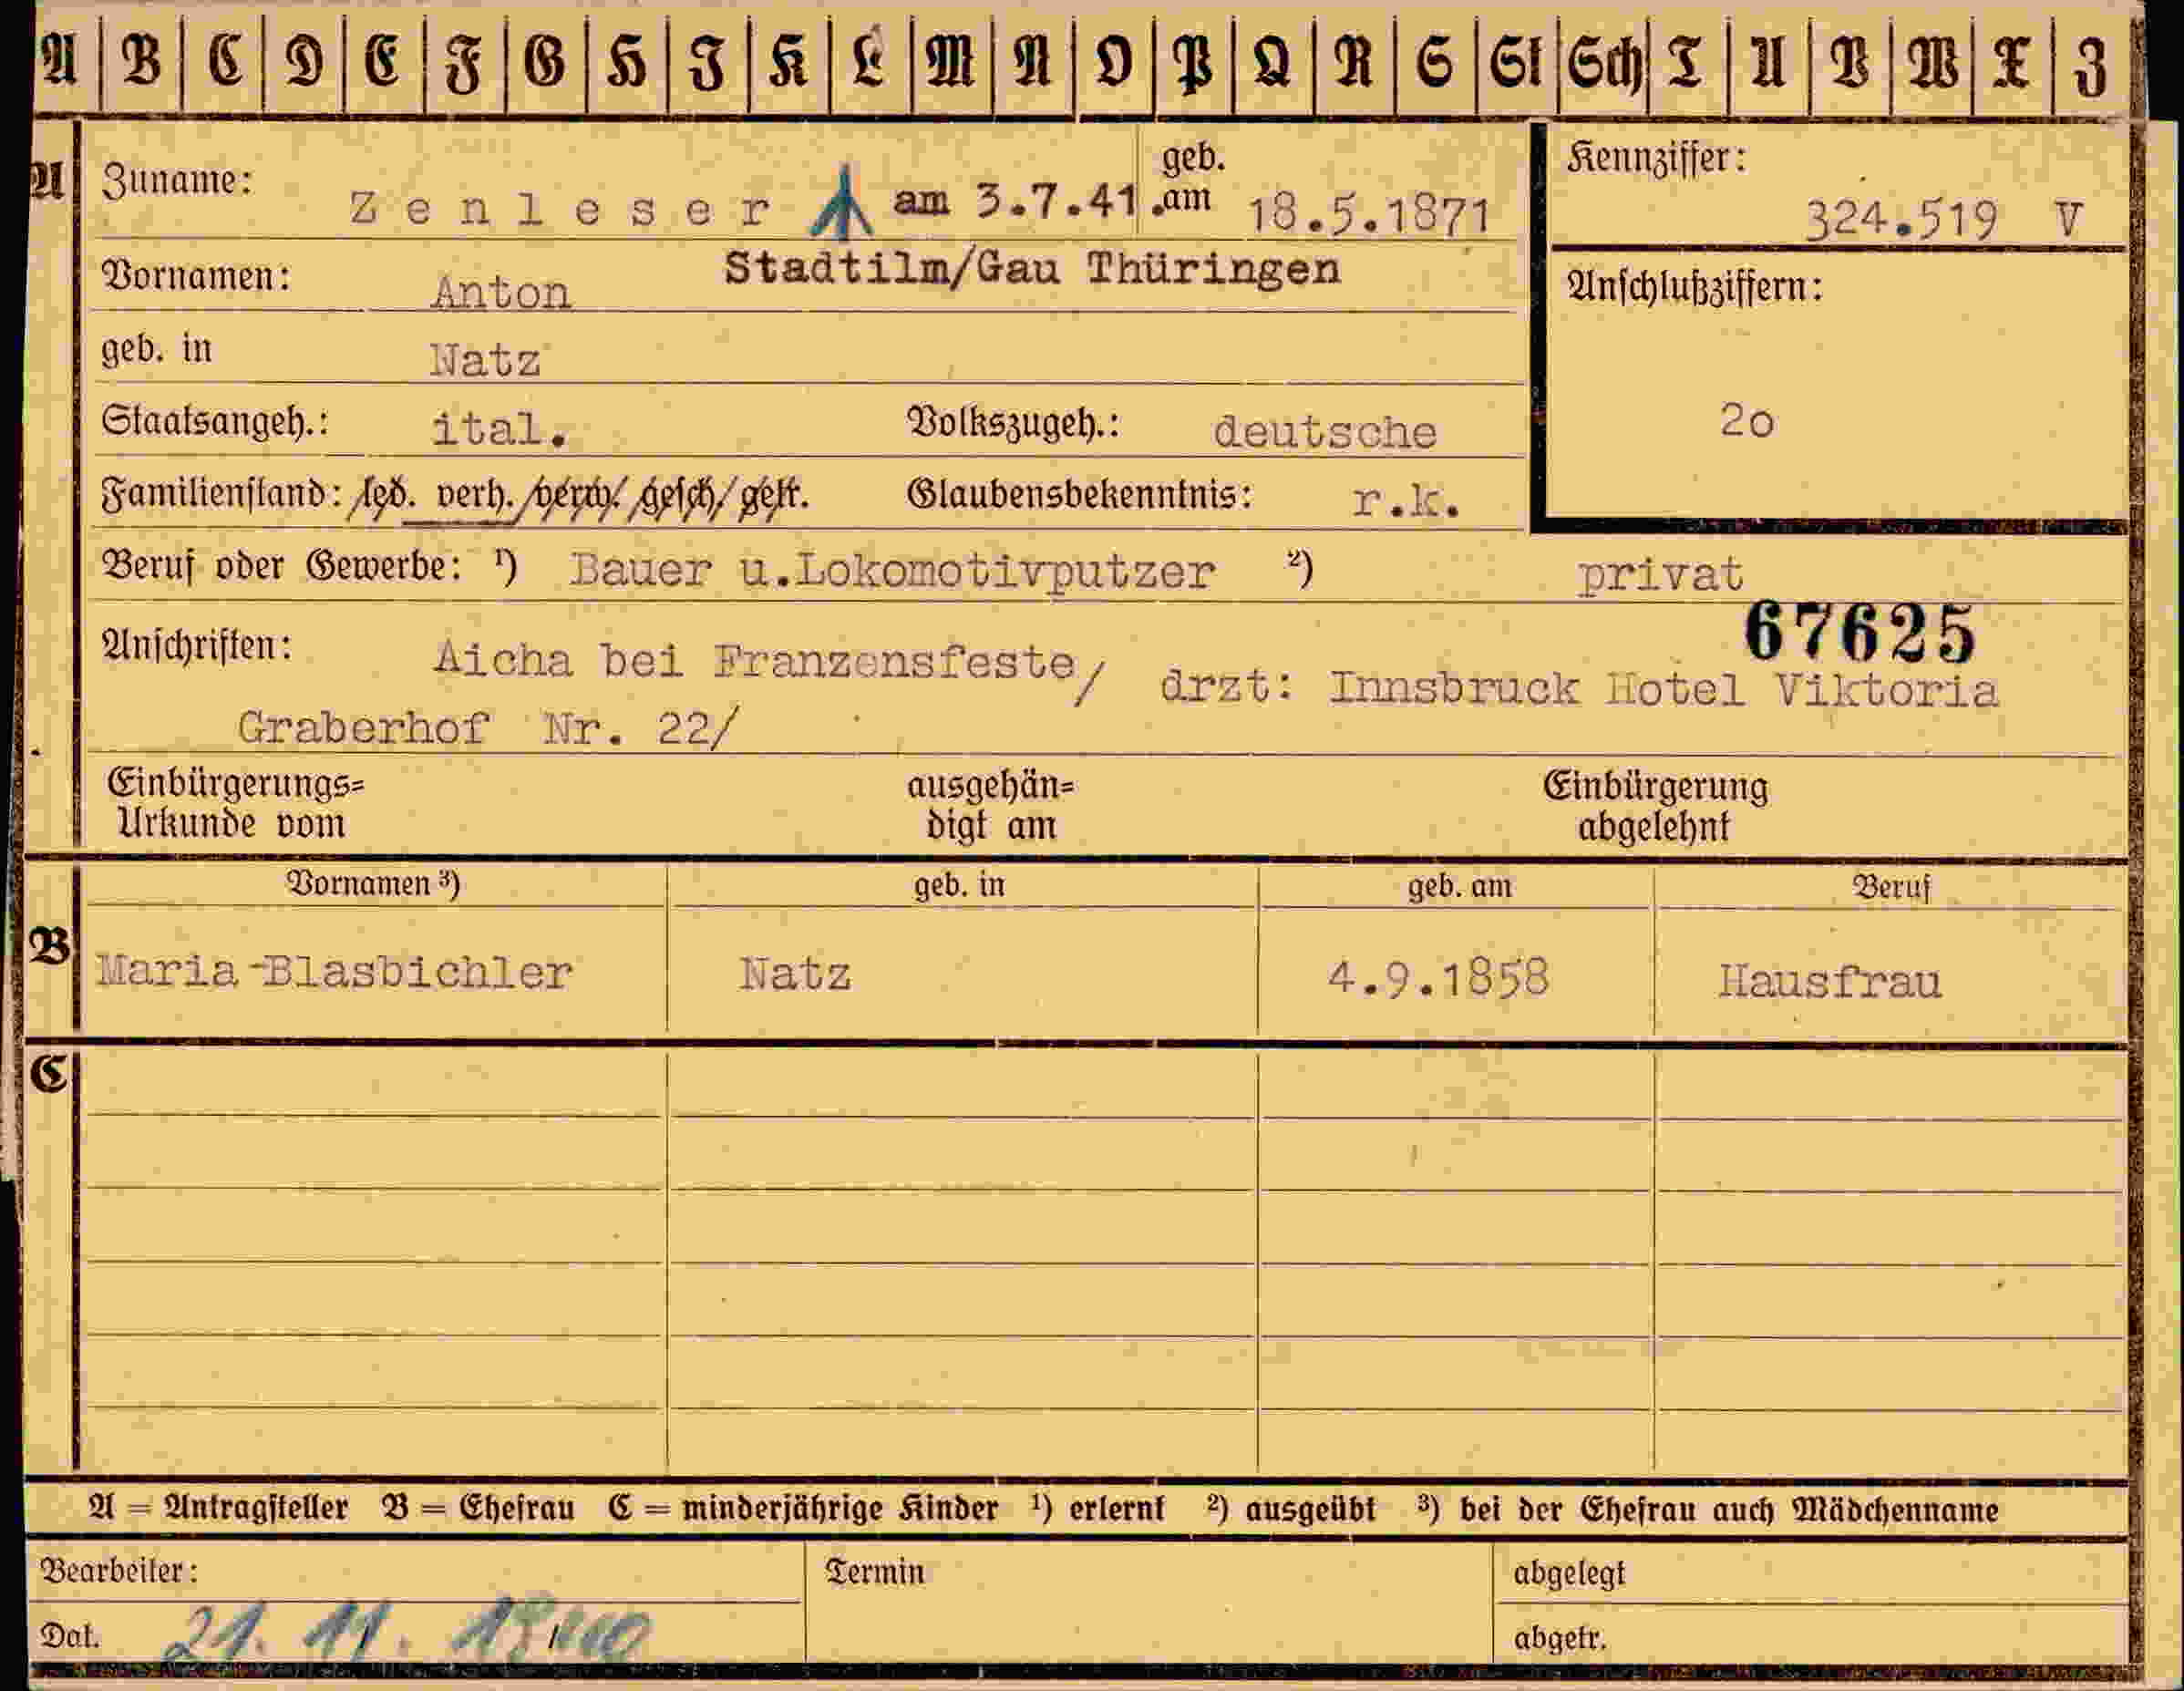 A B C D E F G H I K L M N O P Q R S St Sch T U V W X Z
A Zuname: Zenleser am 3.7.41. geb. am 18.5.1871
Kennziffer: 324.519 V
Stadtilm/Gau Thüringen
Vornamen: Anton
Anschlußziffern:
geb. in Natz
Staatsangeh.: ital. Volkszugeh.: deutsche
2o
Familienstand: led. verh. /verw. /gesch/ getr. Glaubensbekenntnis: r.k.
Beruf oder Gewerbe: ¹) Bauer u.Lokomotivputzer ²) privat
67625
Anschriften: Aicha bei Franzensfeste/ drzt: Innsbruck Hotel Viktoria
Graberhof Nr. 22/
Einbürgerungs= ausgehän= Einbürgerung
Urkunde vom digt am abgelehnt
Vornamen ³) geb. in geb. am Beruf
B Maria-Blasbichler Natz 4.9.1858 Hausfrau
C
A = Antragsteller B = Ehefrau C = minderjährige Kinder ¹) erlernt ²) ausgeübt ³) bei der Ehefrau auch Mädchenname
Bearbeiter: Termin abgelegt
Dat. 21. 11. 1940 abgetr.